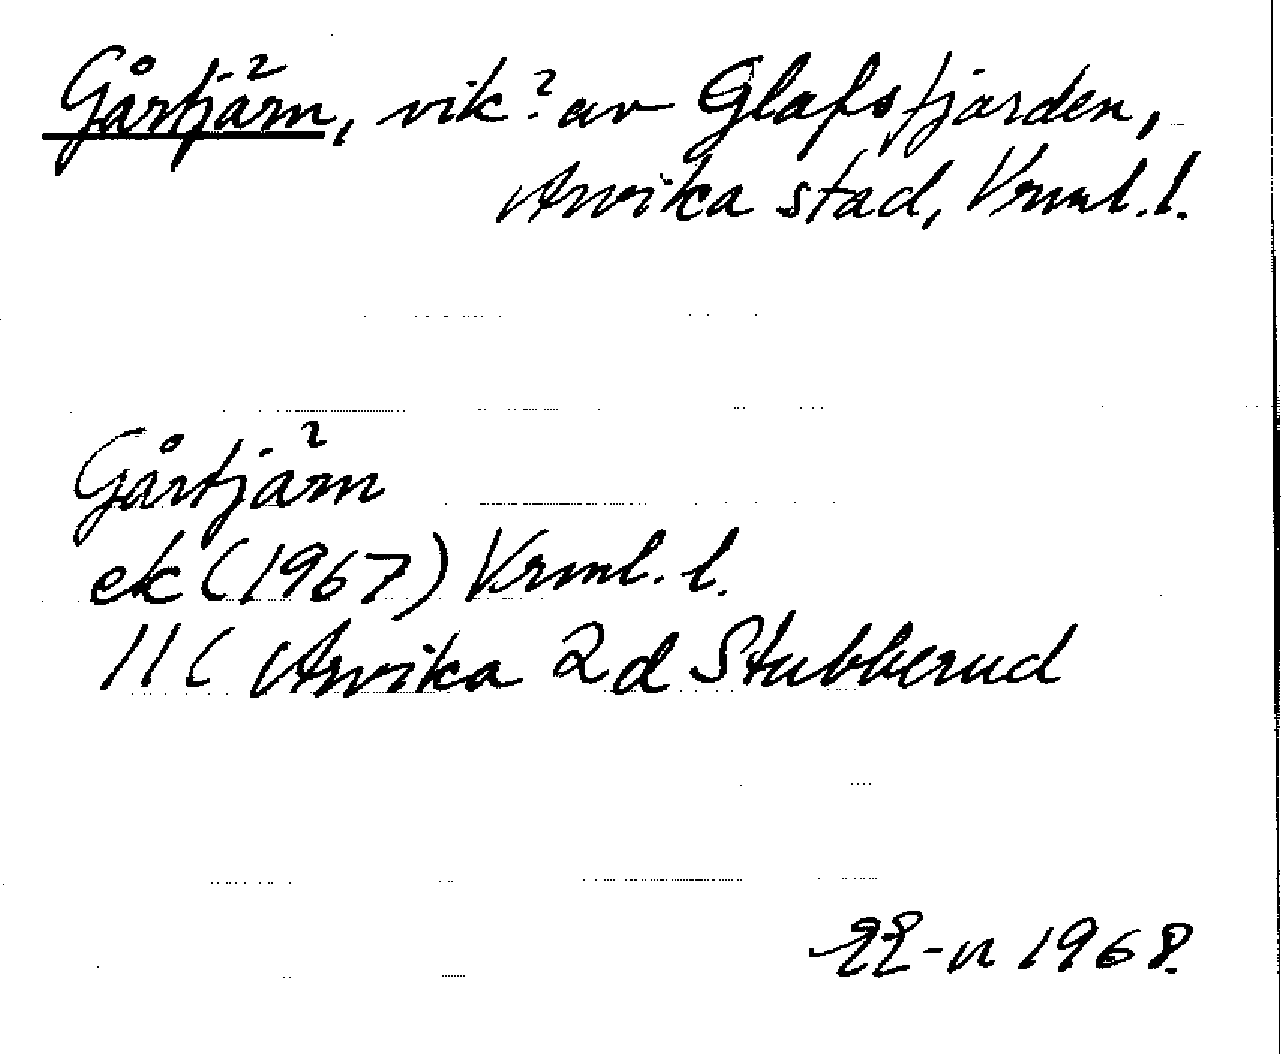 Gårtjärn, vik? av Glafsfjorden,
Arvika stad, Vrml. l.
Gårtjärn
ek (1967) Vrml. l.
11C Arvika 2d Stubberud
1968.